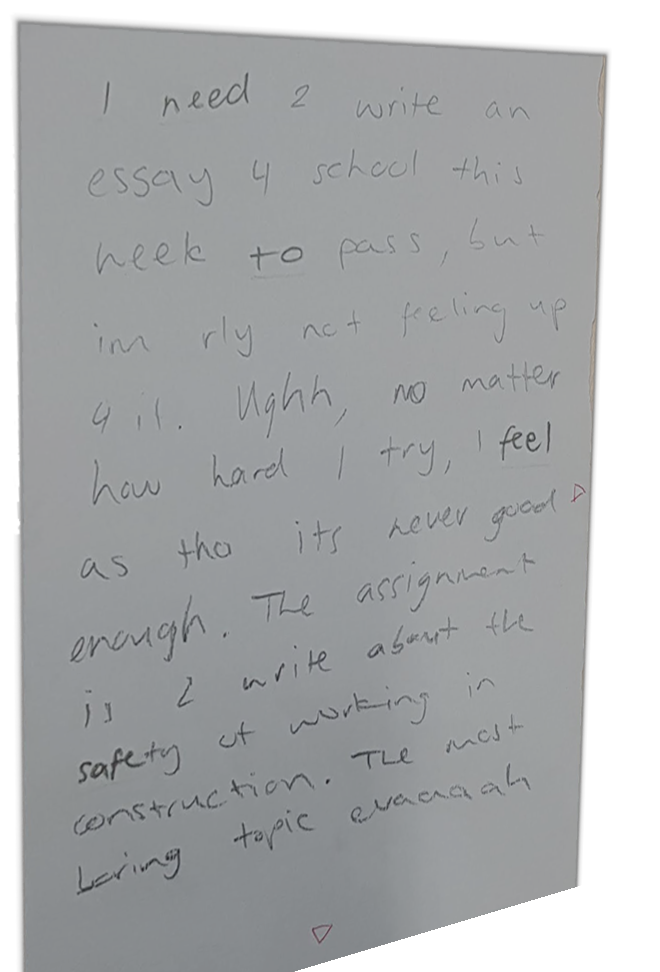 I need 2 write an
essay 4 school this
week to pass, but
im rly not feeling up
4 it. Ughh, no matter
how hard I try, I feel
as tho its never good
enough. The assignment
is 2 write about the
safety of working in
construction. The most
boring topic evaaaaah